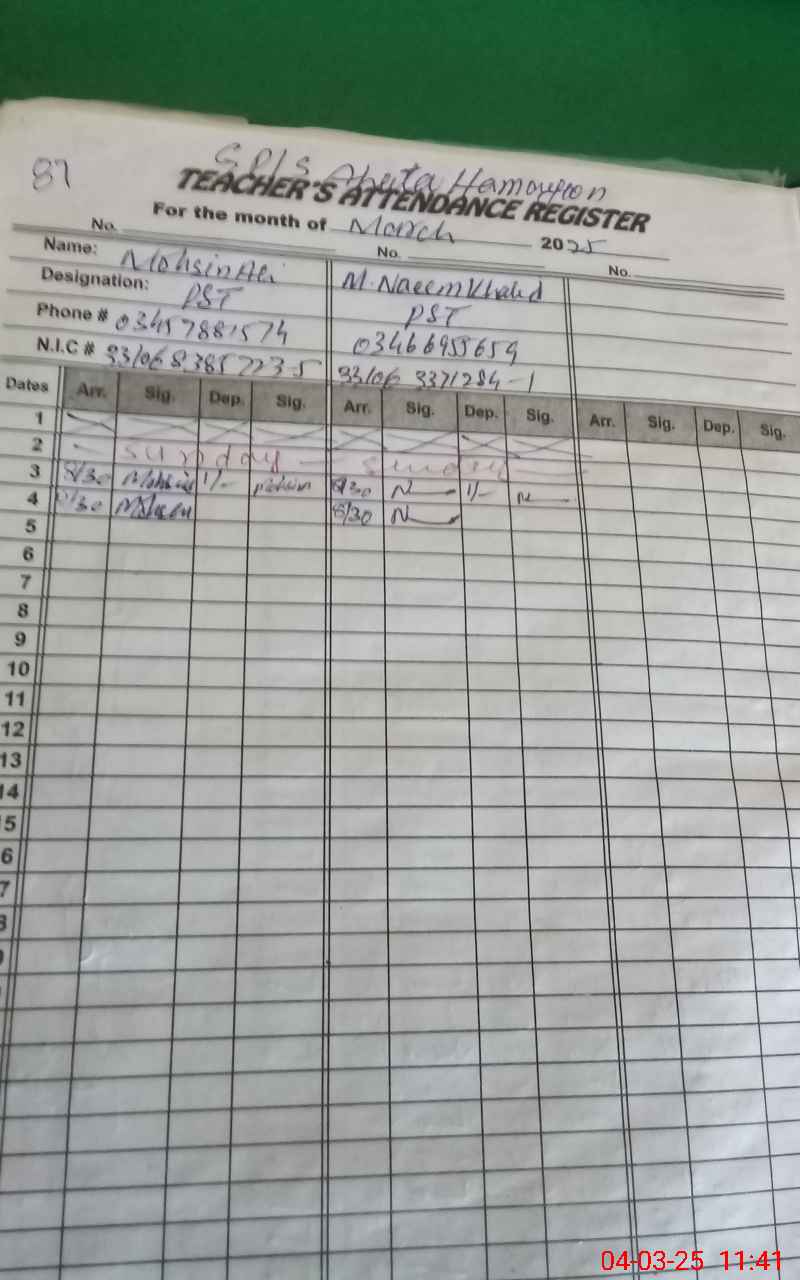 87
G.P/S Hamayoon
TEACHER'S ATTENDANCE REGISTER
For the month of March 2025
No. No. No.
Name: Mohsin Ali M. Naeem Khalid
Designation: PST PST
Phone # 03457881574 03466955659
N.I.C # 33106 3371284-1
Dates Arr. Sig. Dep. Sig. Arr. Sig. Dep. Sig. Arr. Sig. Dep. Sig.
1
2 Sunday Sunday
3 8/30 Mohsin 1/- Mohsin 8/30 N 1/- N
4 8/30 Mohsin 8/30 N
5
6
7
8
9
10
11
12
13
14
5
6
7
8
04-03-25 11:41